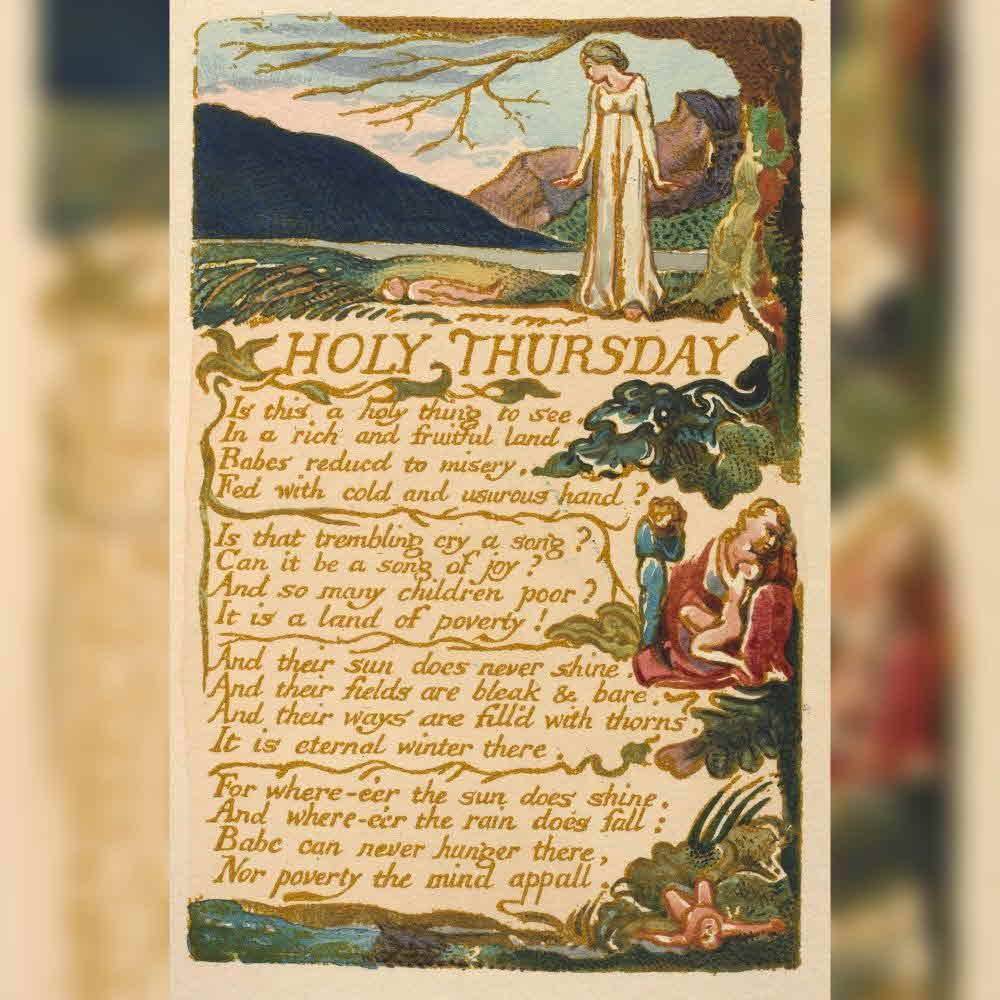 HOLY THURSDAY
Is this a holy thing to see,
In a rich and fruitful land,
Babes reducd to misery,
Fed with cold and usurous hand?
Is that trembling cry a song?
Can it be a song of joy?
And so many children poor?
It is a land of poverty!
And their sun does never shine.
And their fields are bleak & bare.
And their ways are fill'd with thorns.
It is eternal winter there.
For where-e'er the sun does shine,
And where-e'er the rain does fall:
Babe can never hunger there,
Nor poverty the mind appall.